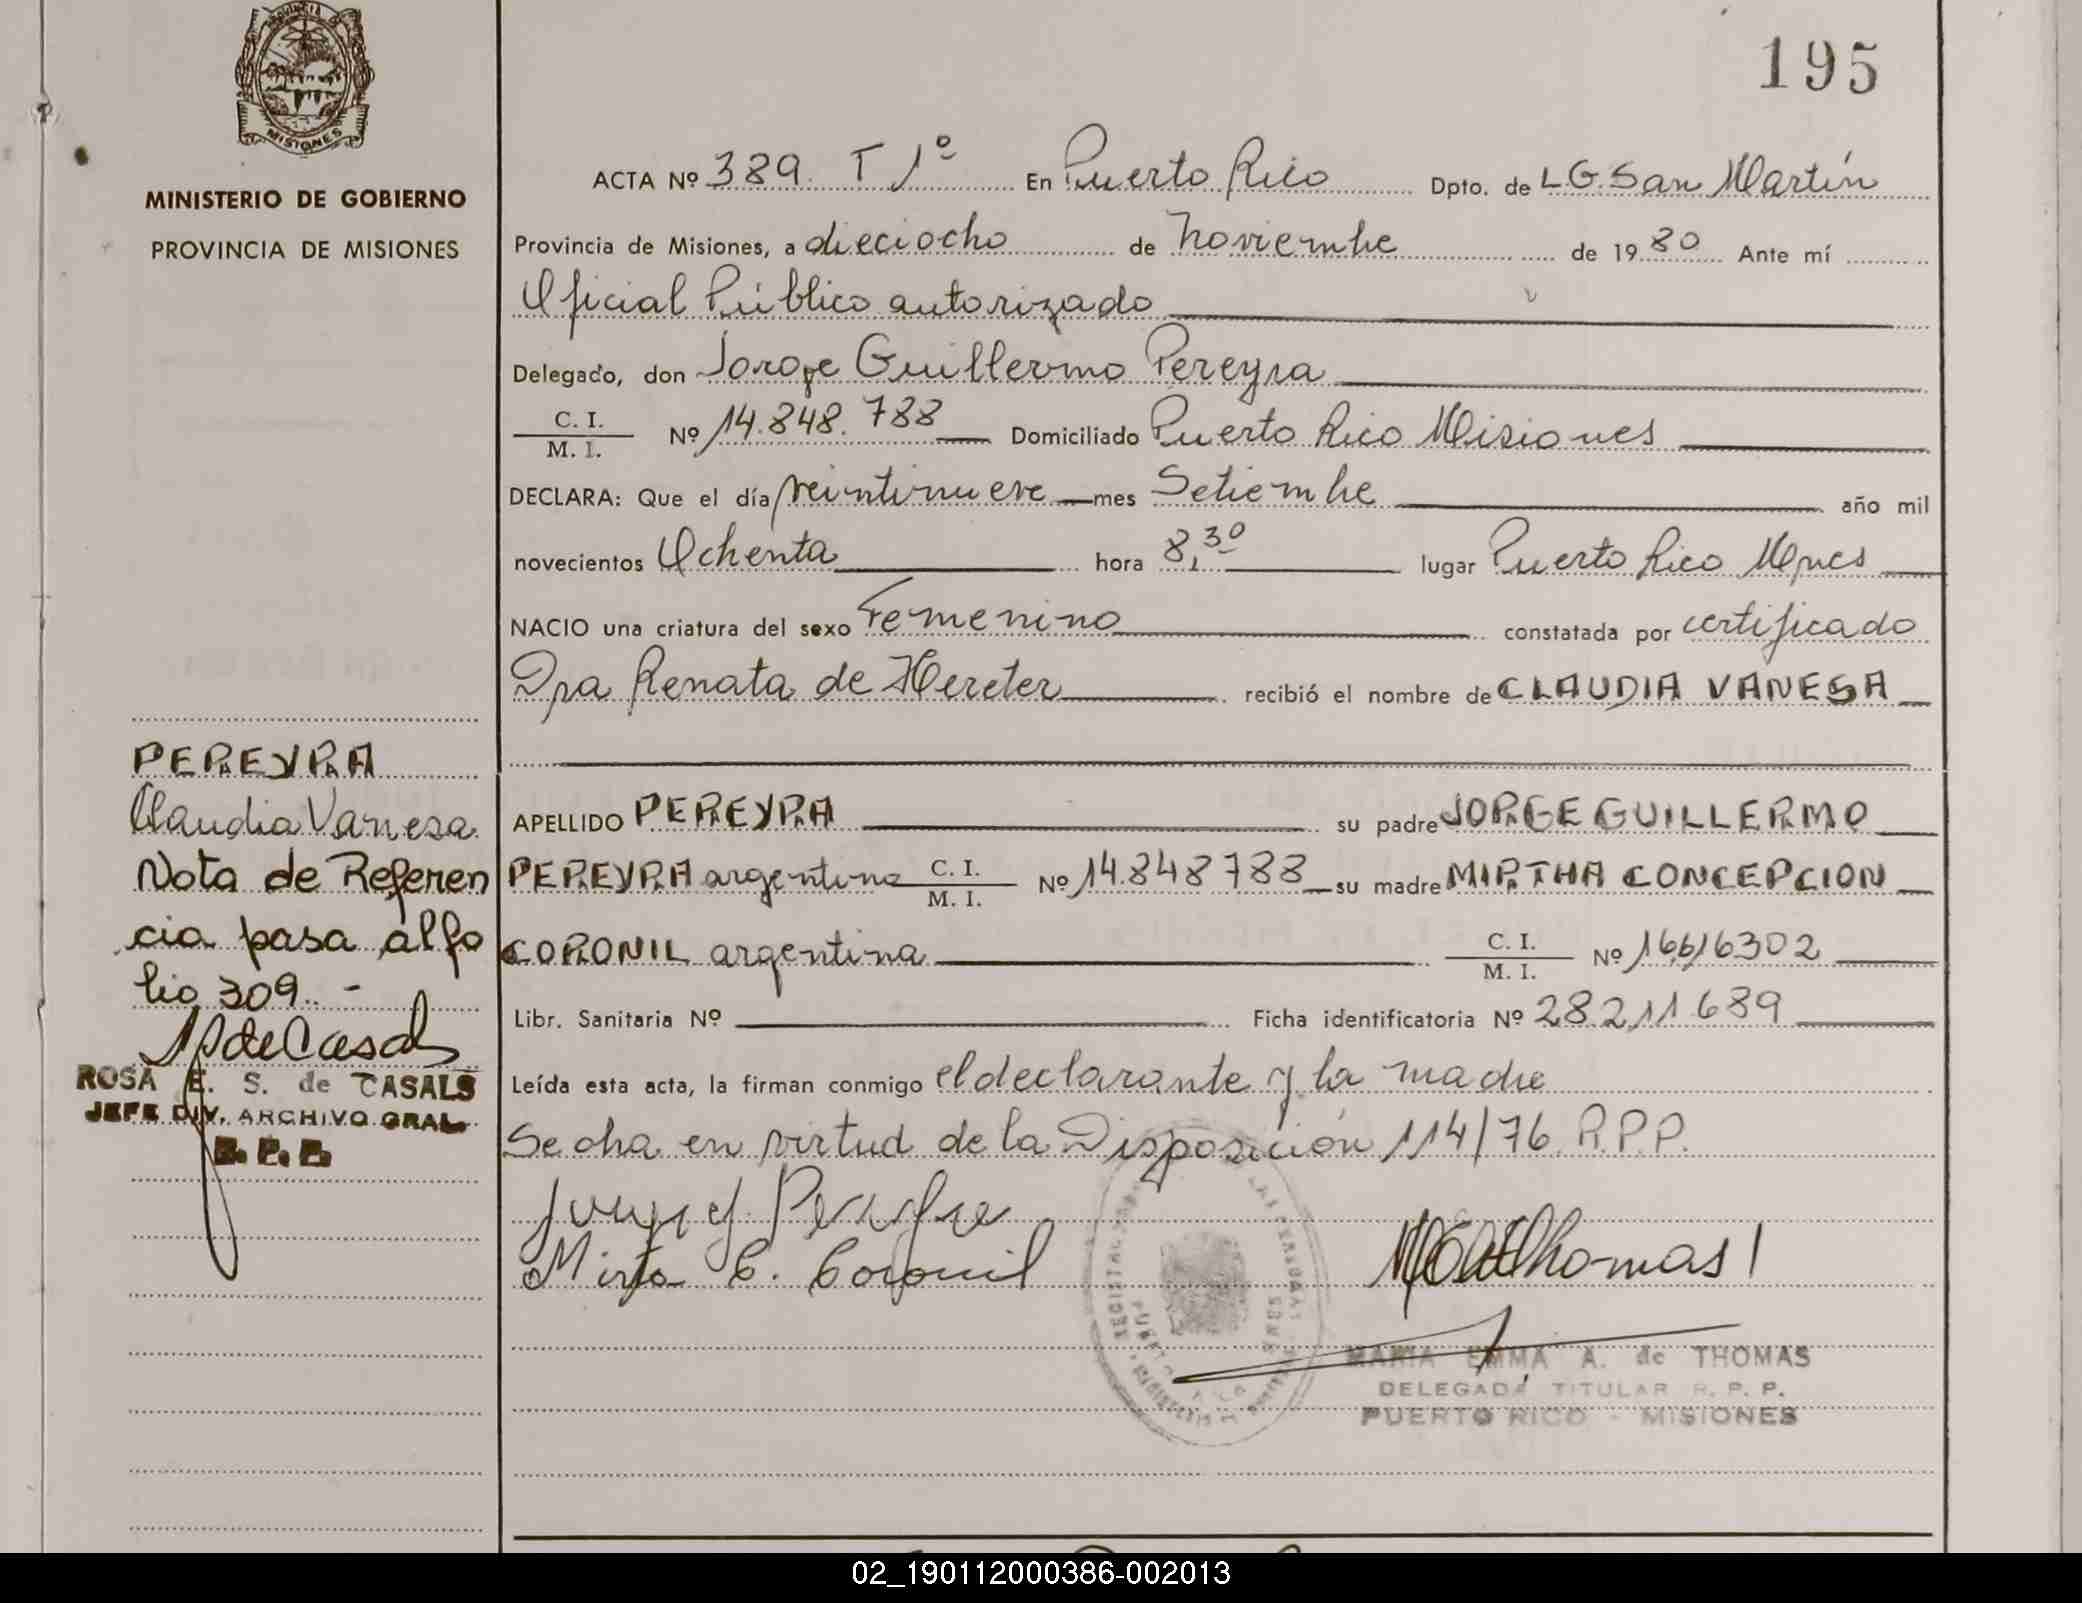 195
PROVINCIA D
MISIONES
MINISTERIO DE GOBIERNO
PROVINCIA DE MISIONES
ACTA Nº 389. T 1º En Puerto Rico Dpto. de L.G. San Martín
Provincia de Misiones, a dieciocho de noviembre de 1980 Ante mí
Oficial Público autorizado
Delegado, don Jorge Guillermo Pereyra
C. I. / M. I. Nº 14.848.788 Domiciliado Puerto Rico Misiones
DECLARA: Que el día veintinueve mes Setiembre año mil
novecientos Ochenta hora 8,30 lugar Puerto Rico Mnes
NACIO una criatura del sexo Femenino constatada por certificado
Dra Renata de Hereter recibió el nombre de CLAUDIA VANESA
APELLIDO PEREYRA su padre JORGE GUILLERMO
PEREYRA argentino C. I. / M. I. Nº 14.848788 su madre MIRTHA CONCEPCION
CORONIL argentina C. I. / M. I. Nº 16616302
Libr. Sanitaria Nº Ficha identificatoria Nº 28.211.689
Leída esta acta, la firman conmigo el declarante y la madre
Se en virtud de la Disposición 114/76 R.P.P.
Mirta C. Coronil
Thomas
MARIA EMMA A. de THOMAS
DELEGADA TITULAR R. P. P.
PUERTO RICO - MISIONES
PEREYRA
Claudia Vanesa
Nota de Referen
cia pasa al fo
lio 309. -
de Casals
ROSA E. S. de CASALS
JEFE DIV. ARCHIVO GRAL.
02_190112000386-002013